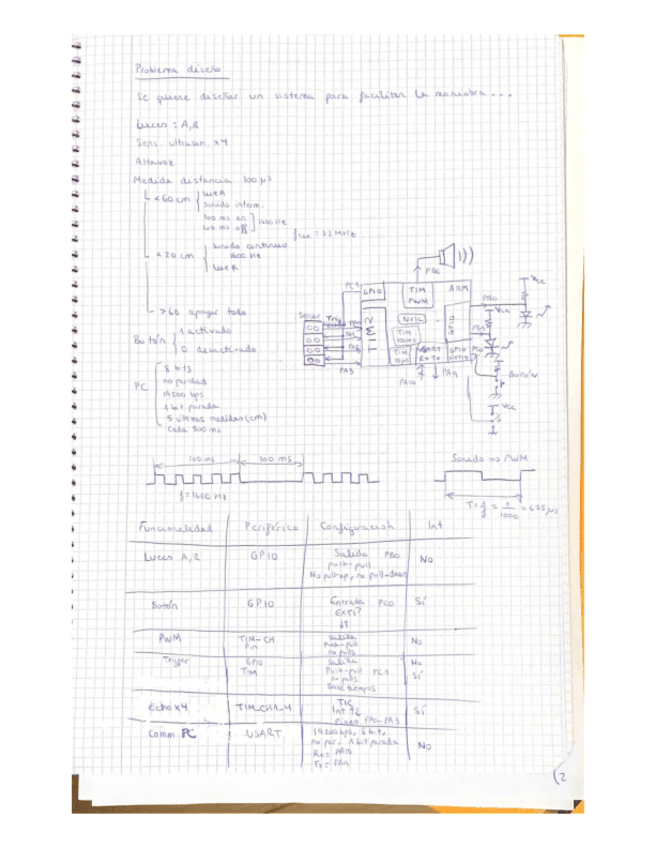 Problema diseño
Se quiere diseñar un sistema para facilitar la maniobra...
Luces: A, R
Sens. ultrason. x4
Altavoz
Medida distancia 100 μs
< 60 cm
Luz A
Sonido interm.
100 ms on
100 ms off
1600 Hz
= 32 MHz
< 20 cm
Sonido continuo
1600 Hz
Luz R
> 60 apagar todo
Botón
1 activado
0 desactivado
PC
8 bits
no paridad
19200 bps
1 bit parada
5 últimas medidas (cm)
Cada 500 ms
PB6
PC1
GPIO
TIM
PWM
ARM
NVIC
Sensor
Trig
PA3
USART
Rx Tx
PA10
PA9
GPIO
PB0
PB1
PC0
Vcc
Vcc
Botón
Vcc
100 ms
100 ms
f = 1600 Hz
Sonido => PWM
T = 1/f = 1/1600 = 625 μs
Funcionalidad Periférico Configuración Int
Luces A, R GPIO Salida PB0 No
push-pull
No pull-up, no pull-down
Botón GPIO Entrada PC0 Sí
EXTI?
PWM TIM-CH Salida No
Push-pull
no pulls
Trigger GPIO Salida No
TIM Push-pull PC1 Sí
no pulls
Base tiempos
Echo x4 TIM_CH1-4 TIC Sí
Pines PA0-PA3
Comm. PC USART 19200 bps, 8 bit, No
no par, 1 bit parada
Rx = PA10
Tx = PA9
(2